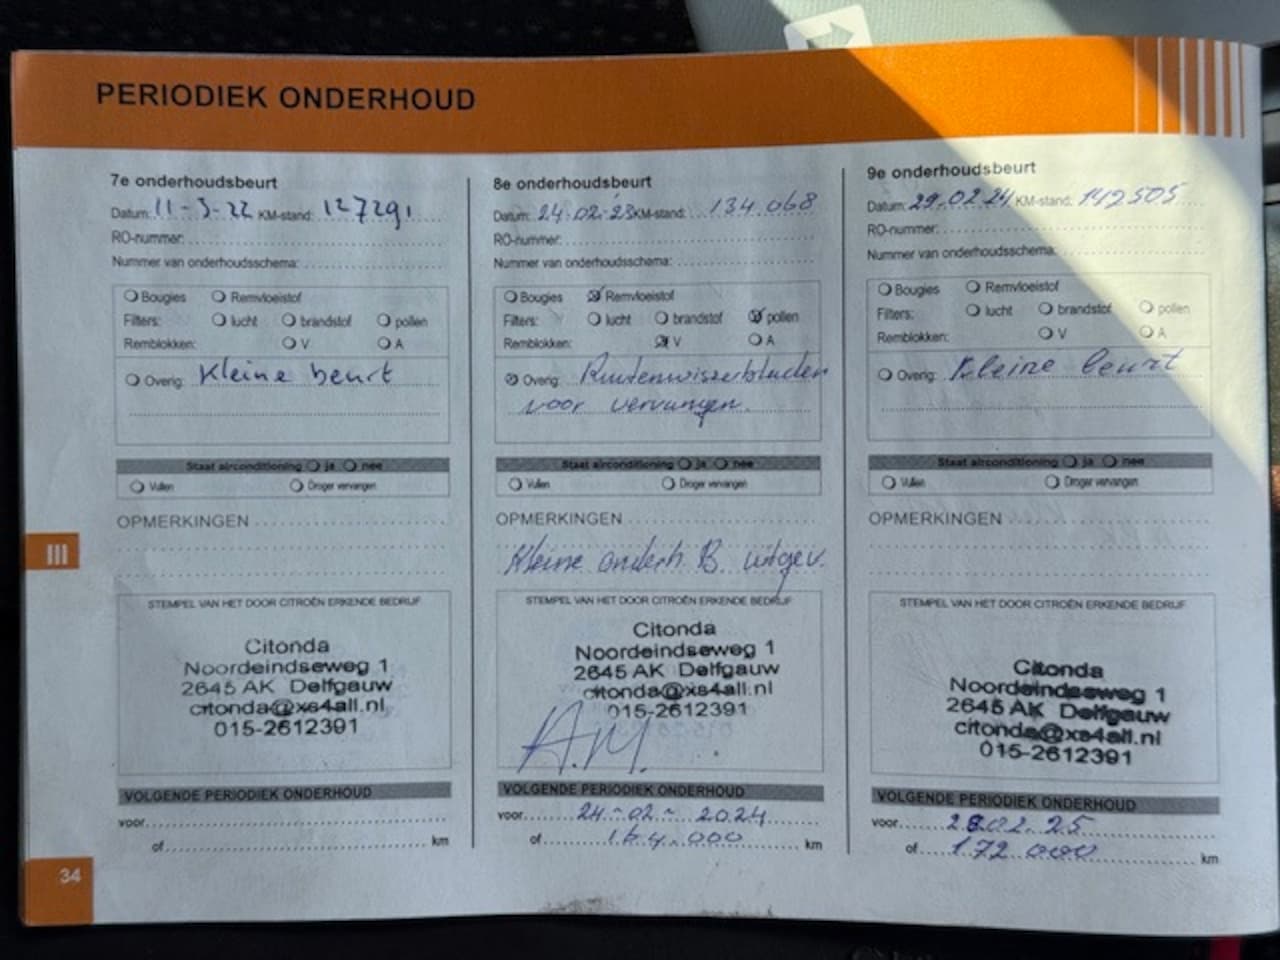 PERIODIEK ONDERHOUD
7e onderhoudsbeurt
Datum: 11-3-22 KM-stand: 127291
RO-nummer:
Nummer van onderhoudsschema:
Bougies Remvloeistof
Filters: lucht brandstof pollen
Remblokken: V A
Overig: Kleine beurt
Staat airconditioning ja nee
Vullen Droger vervangen
OPMERKINGEN
STEMPEL VAN HET DOOR CITROËN ERKENDE BEDRIJF
Citonda
Noordeindseweg 1
2645 AK Delfgauw
citonda@xs4all.nl
015-2612391
VOLGENDE PERIODIEK ONDERHOUD
voor
of km
8e onderhoudsbeurt
Datum: 24-02-23 KM-stand: 134.068
RO-nummer:
Nummer van onderhoudsschema:
Bougies Remvloeistof
Filters: lucht brandstof pollen
Remblokken: V A
Overig: Ruitenwisserbladen
voor vervangen.
Staat airconditioning ja nee
Vullen Droger vervangen
OPMERKINGEN
Kleine onderh. B. uitgev.
STEMPEL VAN HET DOOR CITROËN ERKENDE BEDRIJF
Citonda
Noordeindseweg 1
2645 AK Delfgauw
citonda@xs4all.nl
015-2612391
A.M.
VOLGENDE PERIODIEK ONDERHOUD
voor 24-02-2024
of 164.000 km
9e onderhoudsbeurt
Datum: 29.02.24 KM-stand: 142505
RO-nummer:
Nummer van onderhoudsschema:
Bougies Remvloeistof
Filters: lucht brandstof pollen
Remblokken: V A
Overig: Kleine beurt
Staat airconditioning ja nee
Vullen Droger vervangen
OPMERKINGEN
STEMPEL VAN HET DOOR CITROËN ERKENDE BEDRIJF
Citonda
Noordeindseweg 1
2645 AK Delfgauw
citonda@xs4all.nl
015-2612391
VOLGENDE PERIODIEK ONDERHOUD
voor 28.02.25
of 172.000 km
III
34